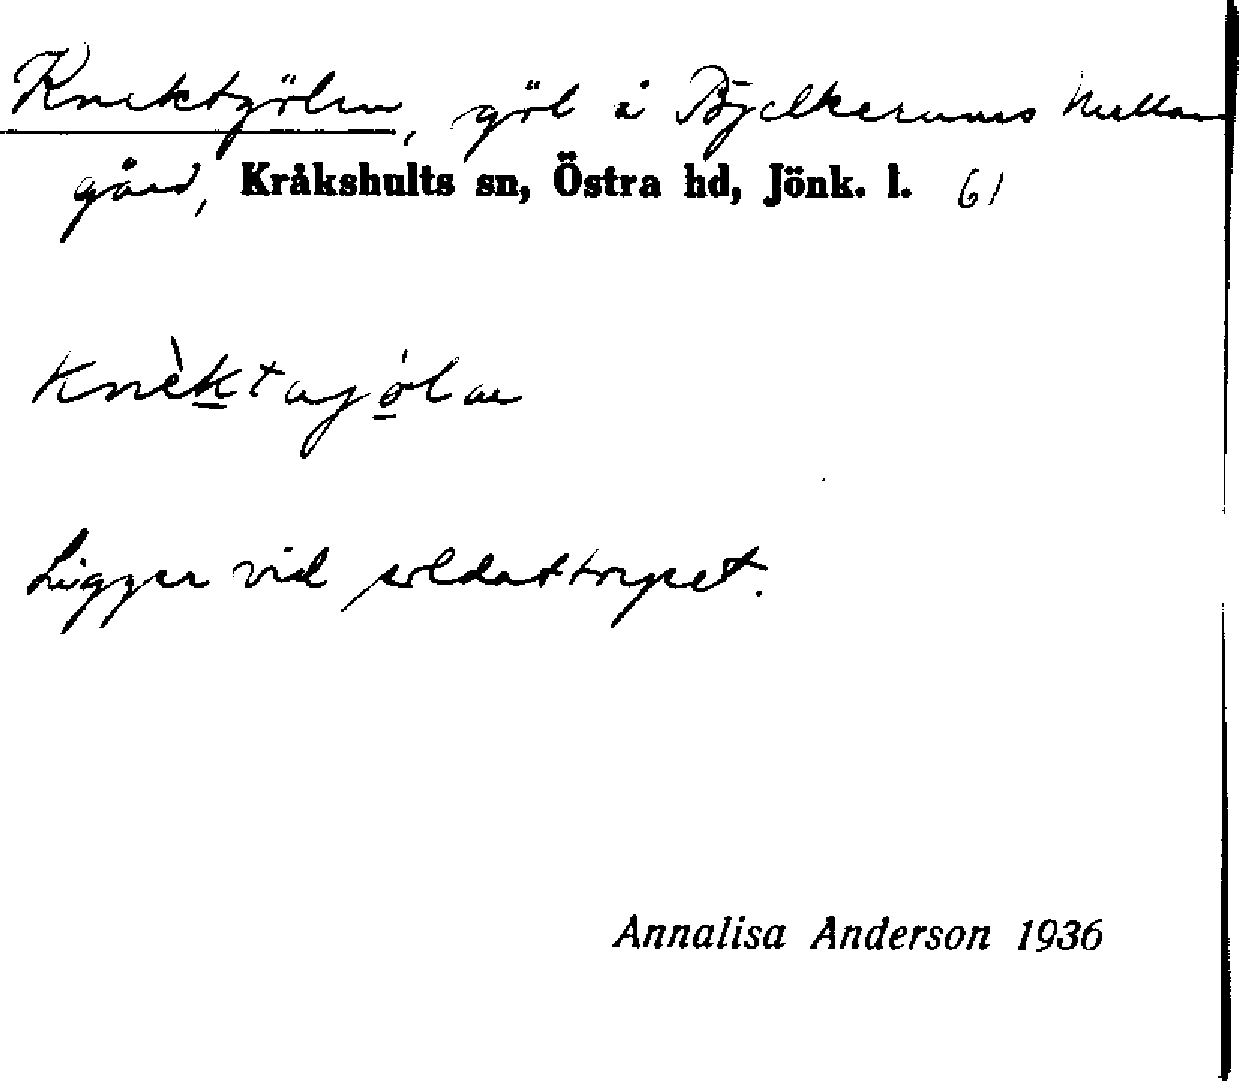 Knektgölen, göl å Bjelkerums Mellan
gård, Kråkshults sn, Östra hd, Jönk. l. 61
knèktagjólan
Ligger vid soldattorpet.
Annalisa Anderson 1936